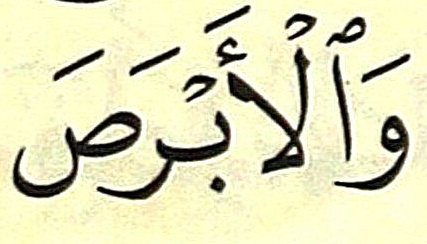 وَٱلْأَبْرَصَ